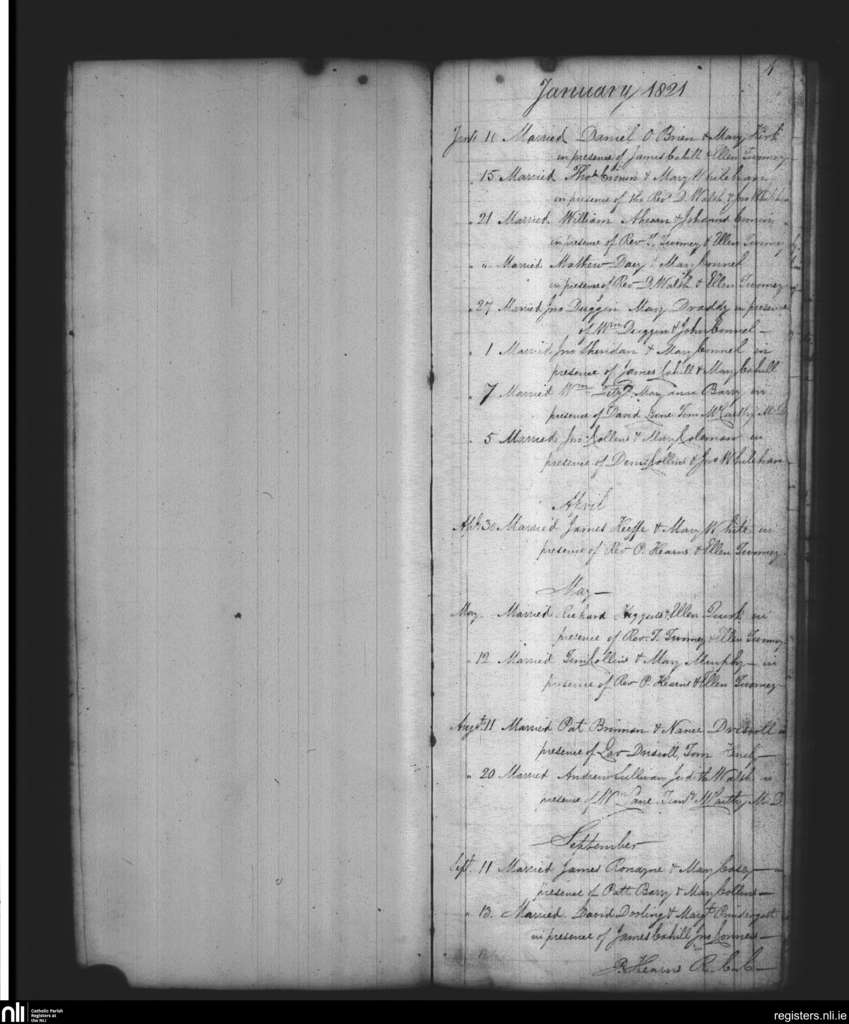 4
January 1821
16 Married Daniel O Brien & Mary Kirk
in presence of James Cahill & Ellen Tunney
15 Married Thos & Mary
in presence of the Revd D Walsh & Jno
21 Married William Ahearn & Johanna
in presence of Rev T. Tunney & Ellen Tunney
" " Married Mathew Dacy & Mary Connel
in presence of Rev D Walsh & Ellen Tunney
27 Married Jno Duggin Mary Draddy in presence
of Wm Duggin & John Connel
1 Married Jno Sheridan & Mary Connel in
presence of James Cahill & Mary Cahill
7 Married Wm Mary anne Barry in
presence of David Tom McCarthy M. D
5 Married Jno Collins & Mary Coleman in
presence of Denis Collins & Jno Whelehan
April
Apl 30 Married James Keeffe & Mary White in
presence of Rev P. Hearne & Ellen Tunney
May
May Married Richard & Ellen Quirk in
presence of Rev T. Tunney & Ellen Tunney
" 12 Married Tim Collins & Mary Murphy in
presence of Rev P. Hearne & Ellen Tunney
Augt 11 Married Pat Brinnan & Nance Driscoll in
presence of Driscoll, Tom
" 20 Married Andrew Sullivan Judith Walsh in
presence of Wm Lane McCarthy M. D
September
Sept 11 Married James Ronayne & Mary Casey
presence of Patt Barry & Mary Collins
" 13. Married David & Margt Prindergast
in presence of James Cahill Jno Connel
P. Hearne R. C. C
nli Catholic Parish
Registers at
the NLI
registers.nli.ie